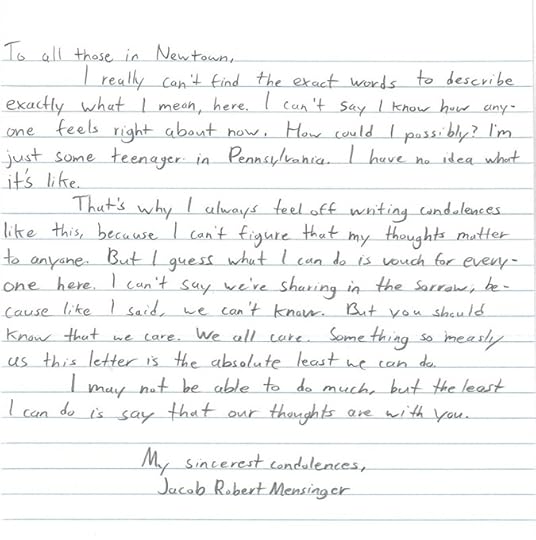 To all those in Newtown,
I really can't find the exact words to describe
exactly what I mean, here. I can't say I know how any-
one feels right about now. How could I possibly? I'm
just some teenager in Pennsylvania. I have no idea what
it's like.
That's why I always feel off writing condolences
like this, because I can't figure that my thoughts matter
to anyone. But I guess what I can do is vouch for every-
one here. I can't say we're sharing in the sorrow, be-
cause like I said, we can't know. But you should
know that we care. We all care. Something so measly
as this letter is the absolute least we can do.
I may not be able to do much, but the least
I can do is say that our thoughts are with you.
My sincerest condolences,
Jacob Robert Mensinger